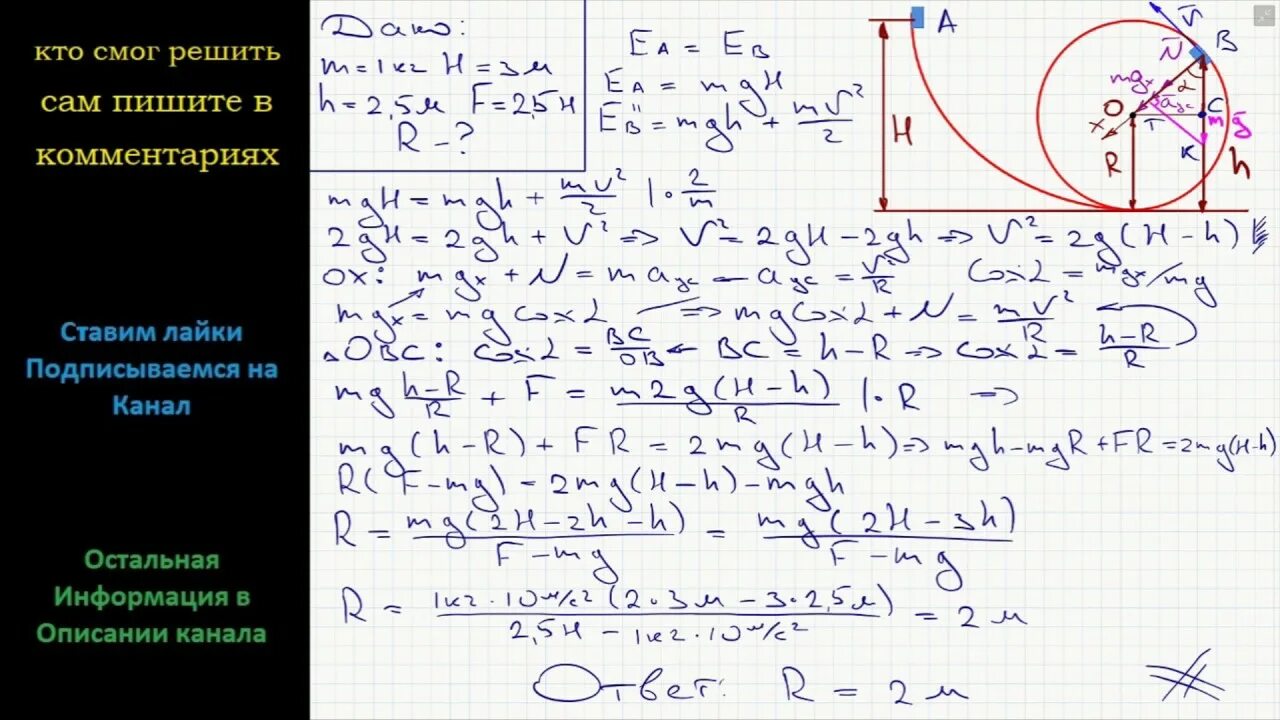 кто смог решить
сам пишите в
комментариях
Ставим лайки
Подписываемся на
Канал
Остальная
Информация в
Описании канала
Дано:
m = 1 кг H = 3 м
h = 2,5 м F = 2,5 Н
R - ?
E_A = E_B
E_A = mgH
E_B = mgh + mV²/2
A
H
V
N
B
mgₓ
α
O
a_цс
C
mg
x
T
K
R
h
mgH = mgh + mV²/2 | · 2/m
2gH = 2gh + V² => V² = 2gH - 2gh => V² = 2g(H - h)
OX: mgₓ + N = ma_цс — a_цс = V²/R Cosα = mgₓ/mg
mgₓ = mg cosα => mg cosα + N = mV²/R
△OBC: cosα = BC/OB ← BC = h - R => cosα = (h-R)/R
mg (h-R)/R + F = m2g(H-h)/R | · R =>
mg(h - R) + FR = 2mg(H - h) => mgh - mgR + FR = 2mg(H-h)
R(F - mg) = 2mg(H - h) - mgh
R = mg(2H - 2h - h)/(F - mg) = mg(2H - 3h)/(F - mg)
R = 1кг · 10 м/с² (2 · 3 м - 3 · 2,5 м)/(2,5Н - 1кг · 10 м/с²) = 2 м
Ответ: R = 2 м